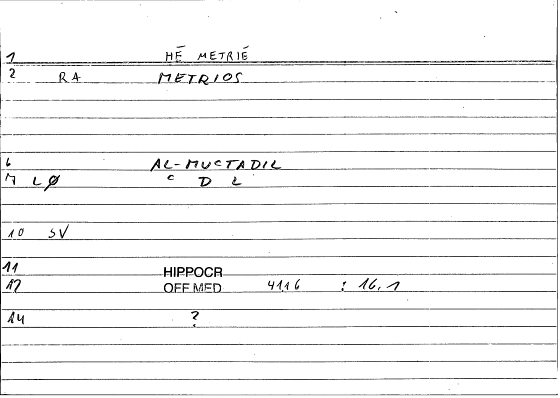 1 HĒ METRIĒ
2 RA METRIOS
6 AL-MUCTADIL
7 LØ C D L
10 SV
11 HIPPOCR
12 OFF MED 4116 : 16,1
14 ?